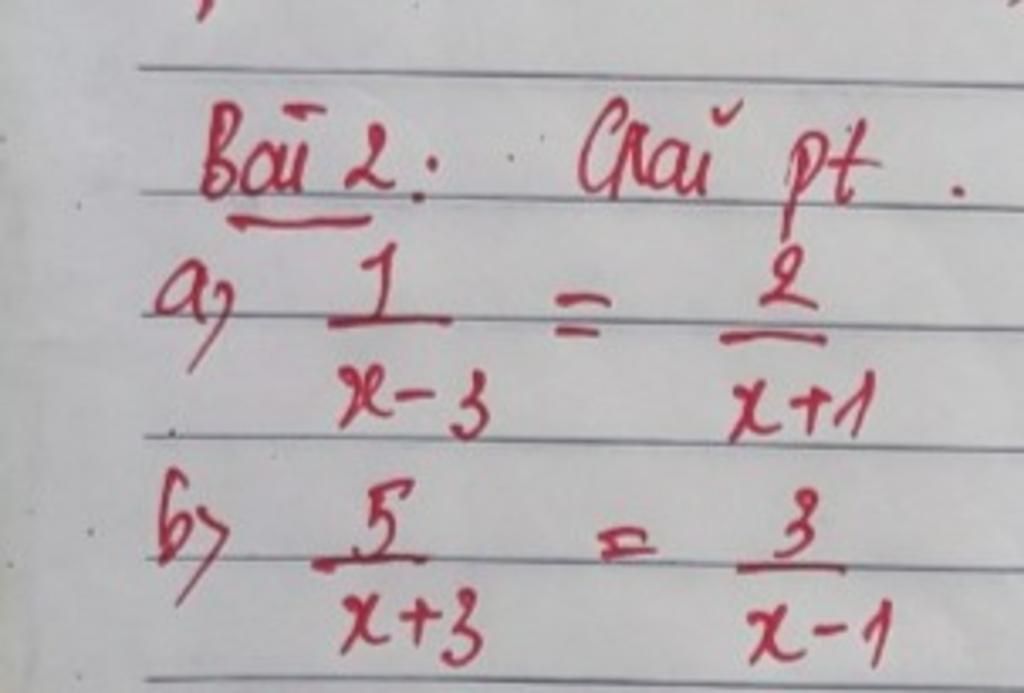 Bài 2: Giải pt.
a) 1/(x-3) = 2/(x+1)
b) 5/(x+3) = 3/(x-1)